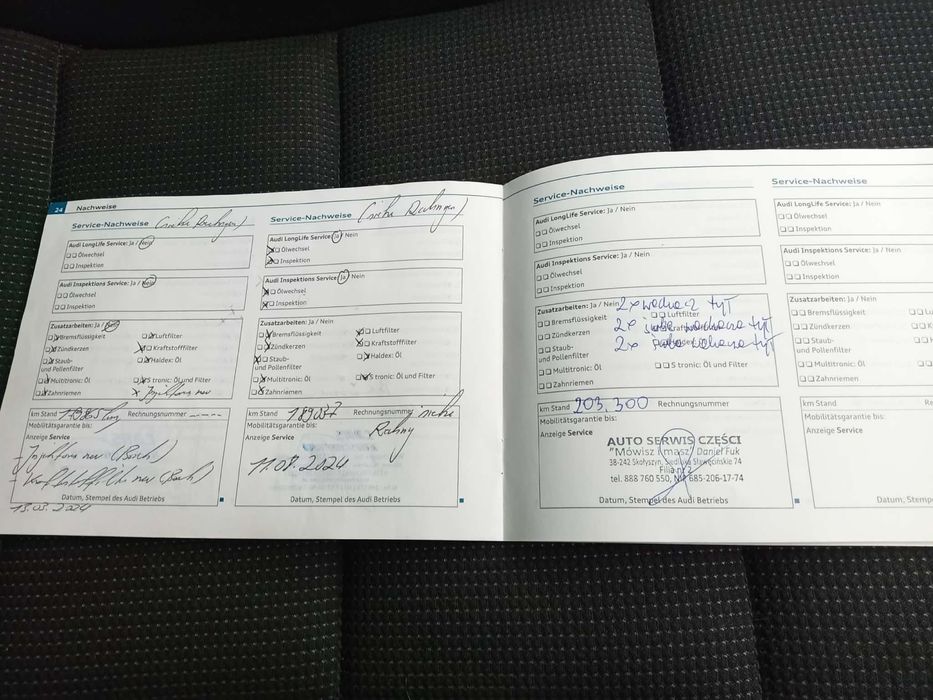 24 Nachweise
Service-Nachweise (siehe
Audi LongLife Service: Ja / Nein
Ölwechsel
Inspektion
Audi Inspektions Service: Ja / Nein
Ölwechsel
Inspektion
Zusatzarbeiten: Ja / Nein
Bremsflüssigkeit
Luftfilter
Zündkerzen
Kraftstofffilter
Staub-
und Pollenfilter
Haldex: Öl
Multitronic: Öl
S tronic: Öl und Filter
Zahnriemen
Injektoren neu
km Stand
Rechnungsnummer
Mobilitätsgarantie bis:
Anzeige Service
- Injektoren neu (Bosch)
neu (Bosch)
Datum, Stempel des Audi Betriebs
Service-Nachweise (siehe
Audi LongLife Service: Ja / Nein
Ölwechsel
Inspektion
Audi Inspektions Service: Ja / Nein
Ölwechsel
Inspektion
Zusatzarbeiten: Ja / Nein
Bremsflüssigkeit
Luftfilter
Zündkerzen
Kraftstofffilter
Staub-
und Pollenfilter
Haldex: Öl
Multitronic: Öl
S tronic: Öl und Filter
Zahnriemen
km Stand
Rechnungsnummer siehe
Mobilitätsgarantie bis:
Anzeige Service
11.08.2024
Datum, Stempel des Audi Betriebs
Service-Nachweise
Audi LongLife Service: Ja / Nein
Ölwechsel
Inspektion
Audi Inspektions Service: Ja / Nein
Ölwechsel
Inspektion
Zusatzarbeiten: Ja / Nein 2x wahacz tył
Bremsflüssigkeit
Luftfilter
2x
tył
Zündkerzen
Kraftstofffilter
2x
tył
Staub-
und Pollenfilter
Haldex: Öl
Multitronic: Öl
S tronic: Öl und Filter
Zahnriemen
km Stand 203.300 Rechnungsnummer
Mobilitätsgarantie bis:
Anzeige Service
AUTO SERWIS CZĘŚCI
"Mówisz i masz" Daniel Fuk
38-242 Skołyszyn, Siedliska Sławęcińskie 74
Filia nr 2
tel. 888 760 550, NIP 685-206-17-74
Datum, Stempel des Audi Betriebs
Service-Nachweise
Audi LongLife Service: Ja / Nein
Ölwechsel
Inspektion
Audi Inspektions Service: Ja / Nein
Ölwechsel
Inspektion
Zusatzarbeiten: Ja / Nein
Bremsflüssigkeit
Zündkerzen
Staub-
und Pollenfilter
Multitronic: Öl
Zahnriemen
km Stand
Mobilitätsgarantie bis:
Anzeige Service
Datum, S